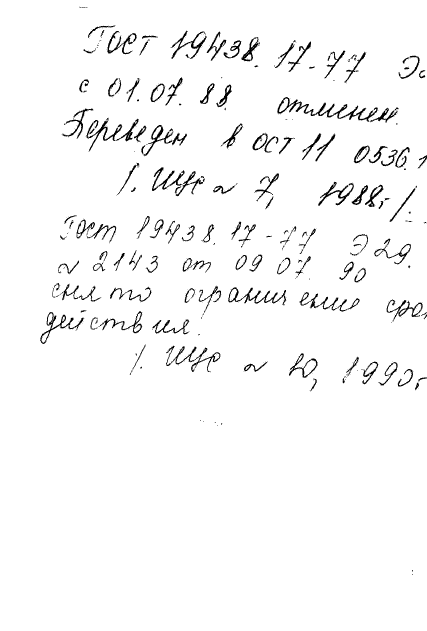 Гост 19438.17-77 Э
с 01.07.88 отменен.
Переведен в ост 11 0536.
/. ИУС № 7, 1988г/.
Гост 19438.17-77 Э29.
№ 2143 от 09 07. 90
снято ограничение сро
действия.
/. ИУС № 10, 1990г